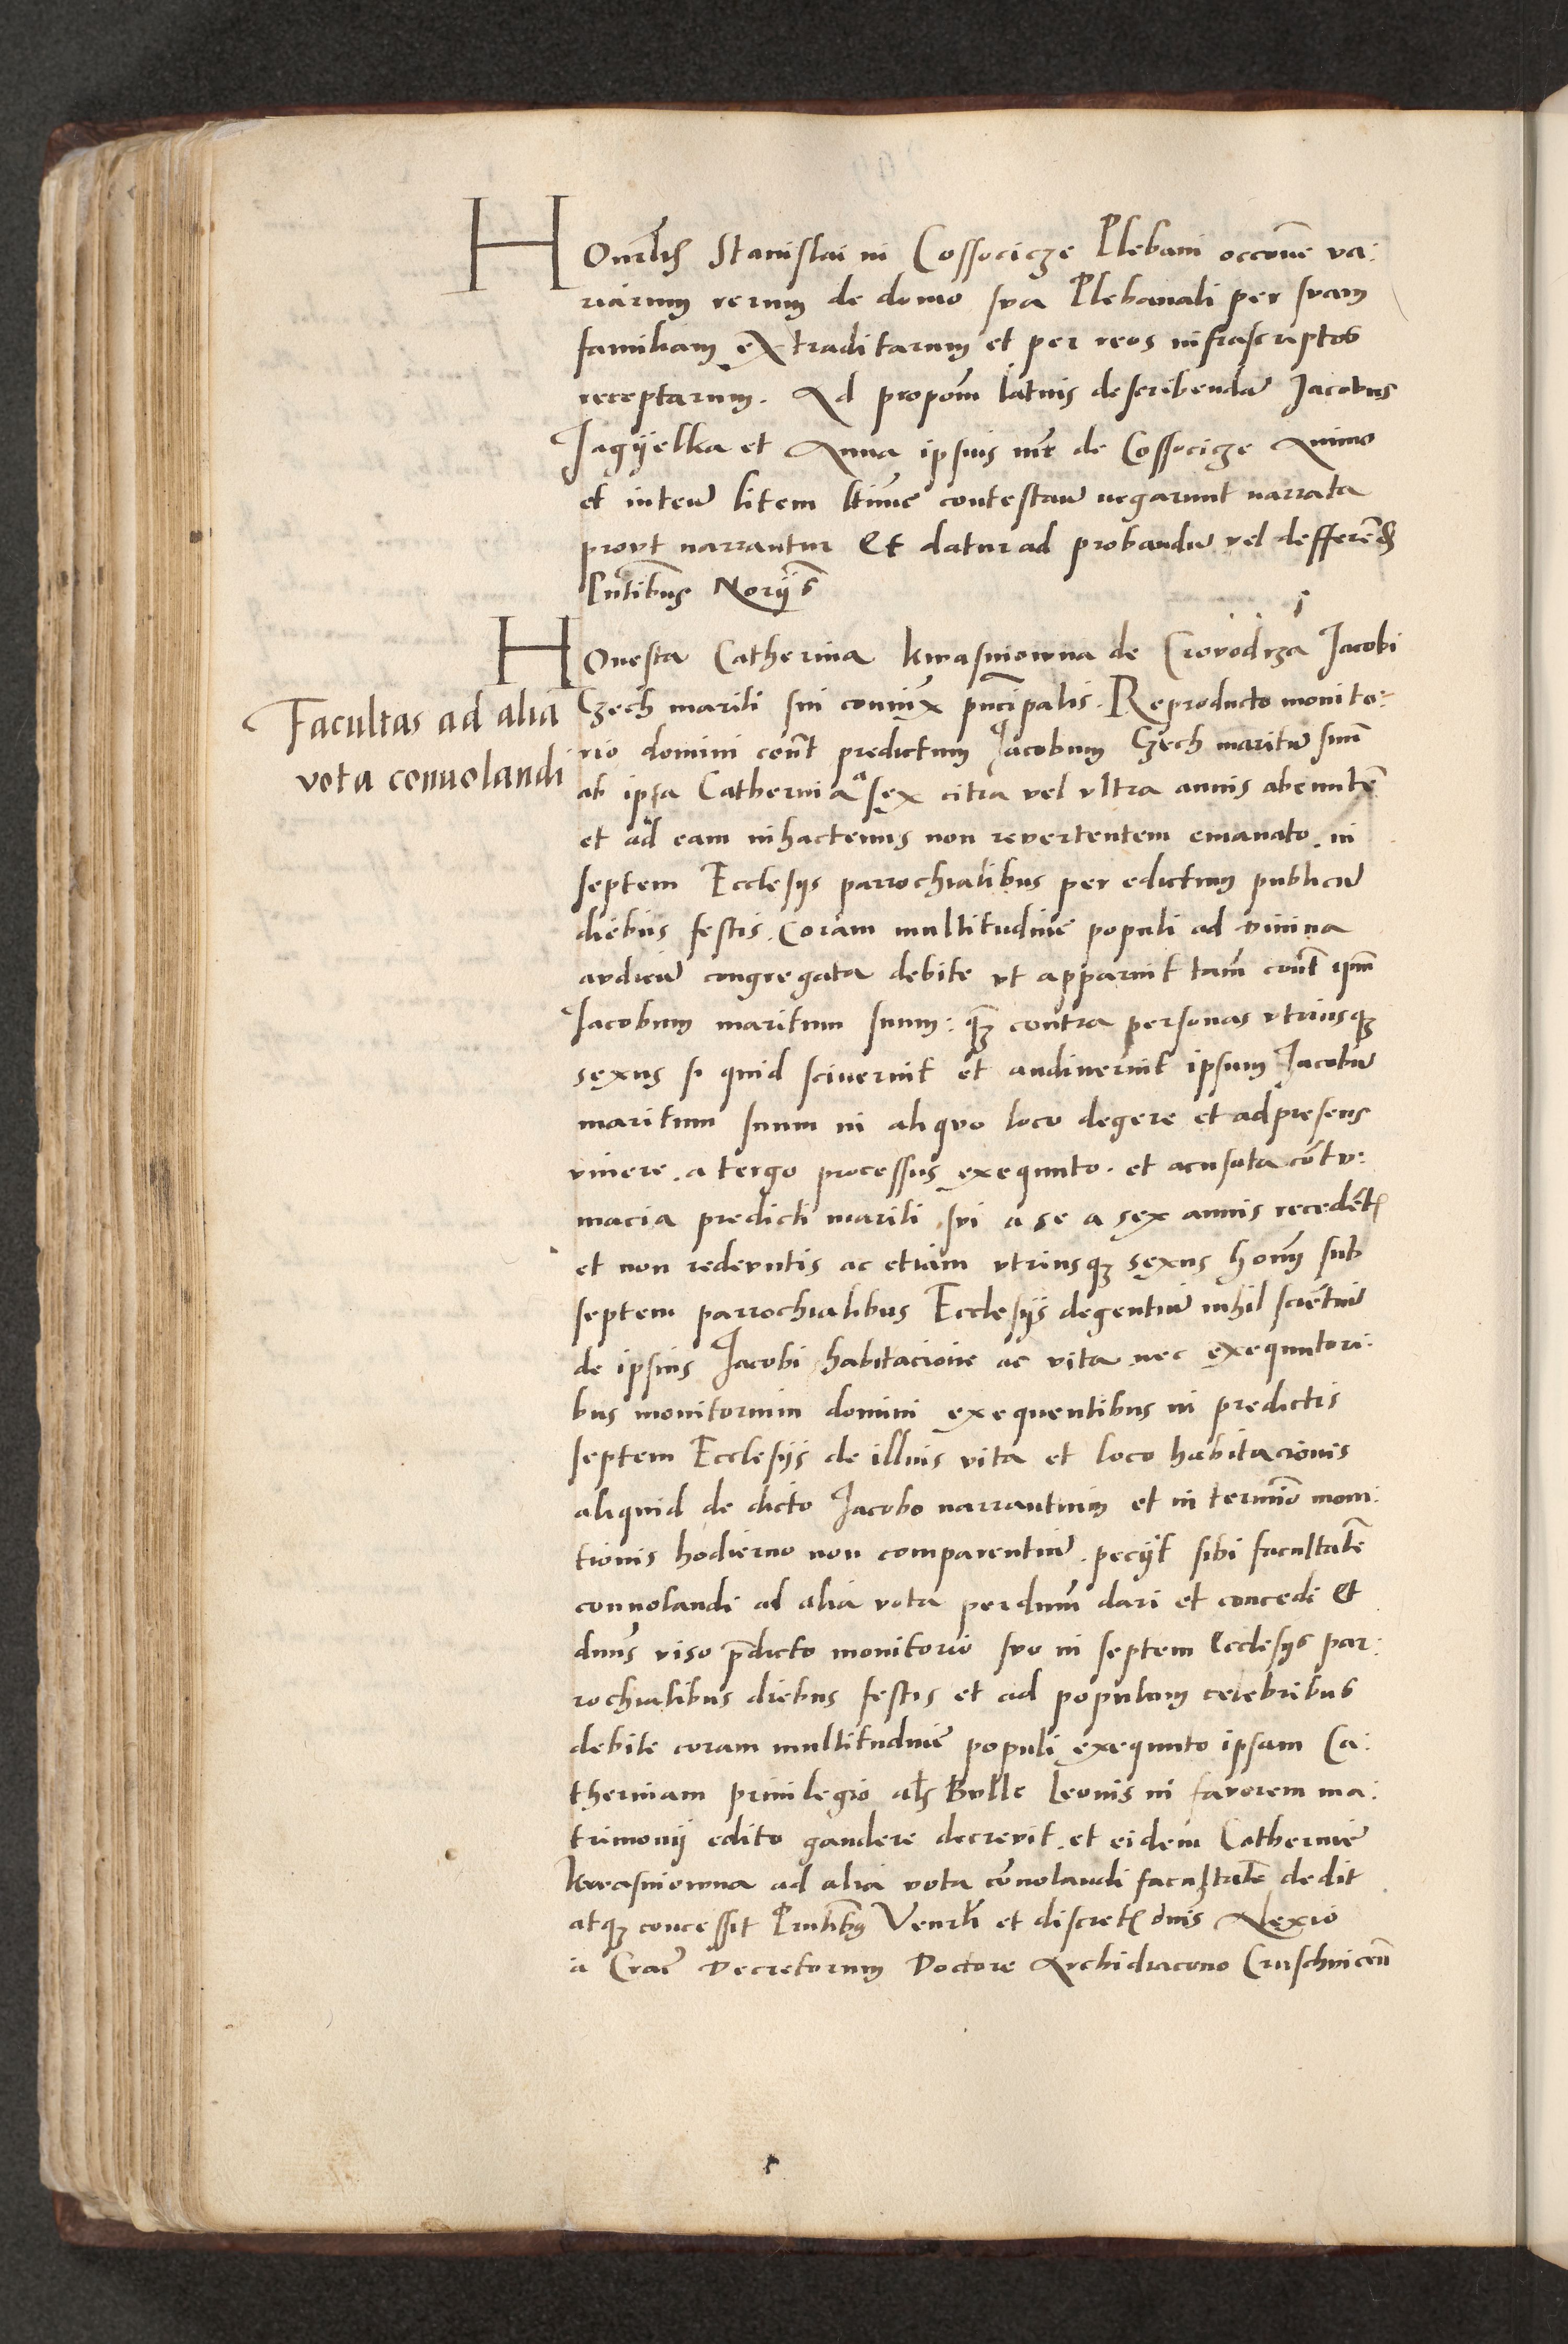 Honorabilis Stanislai in Cossocicze Plebani occone va:
riarum rerum de domo sua Plebanali per suam
familiam extraditarum et per reos infrascriptos
receptarum. Ad propom latius describendam Jacobus
Jagyelka et Anna ipsius de Cossocicze Animo
et intentione litem ltime contestando negarunt narrata
provt narrantur Et datur ad probandum vel defferend
Pntibus Noriis
Honesta Catherina Kwasniowna de Crovodrza Jacobi
Facultas ad alia
vota convolandi
Czech mariti sui coniunx principalis. Reproducto monito:
rio domini cont predictum Jacobum Czech maritum suum
ab ipsa Catherina a sex citra vel vltra annis abeuntem
et ad eam inhactenus non revertentem emanato in
septem Ecclesiis parrochialibus per edictum publicum
diebus festis coram multitudine populi ad divina
audienda congregata debite vt apparuit tam cont ipsum
Jacobum maritum suum: quam contra personas vtriusque
sexus si quid sciverint et audiverint ipsum Jacobum
maritum suum in aliquo loco degere et ad presens
vivere a tergo processus exequuto. et acusata contu:
macia predicti mariti sui a se a sex annis recedentis
et non redeuntis ac etiam vtriusque sexus hominum sub
septem parrochialibus Ecclesiis degentium nihil scientium
de ipsius Jacobi habitacione ac vita nec exequutori:
bus monitorium domini exequentibus in predictis
septem Ecclesiis de illius vita et loco habitacionis
aliquid de dicto Jacobo narrantium et in termino moni:
tionis hodierno non comparentium peciit sibi facultatem
convolandi ad alia vota per dnum dari et concedi Et
dnus viso predicto monitorio suo in septem Ecclesiis par:
rochialibus diebus festis et ad populum celebribus
debite coram multitudine populi exequuto ipsam Ca:
therinam privilegio als Bulle Leonis in favorem ma:
trimonii edito gaudere decrevit et eidem Catherine
Kwasniowna ad alia vota convolandi facultatem dedit
atque concessit Pntibus Venrli et discretis dnis Alexio
a Crac Decretorum Doctore Archidiacono Cruschvicen